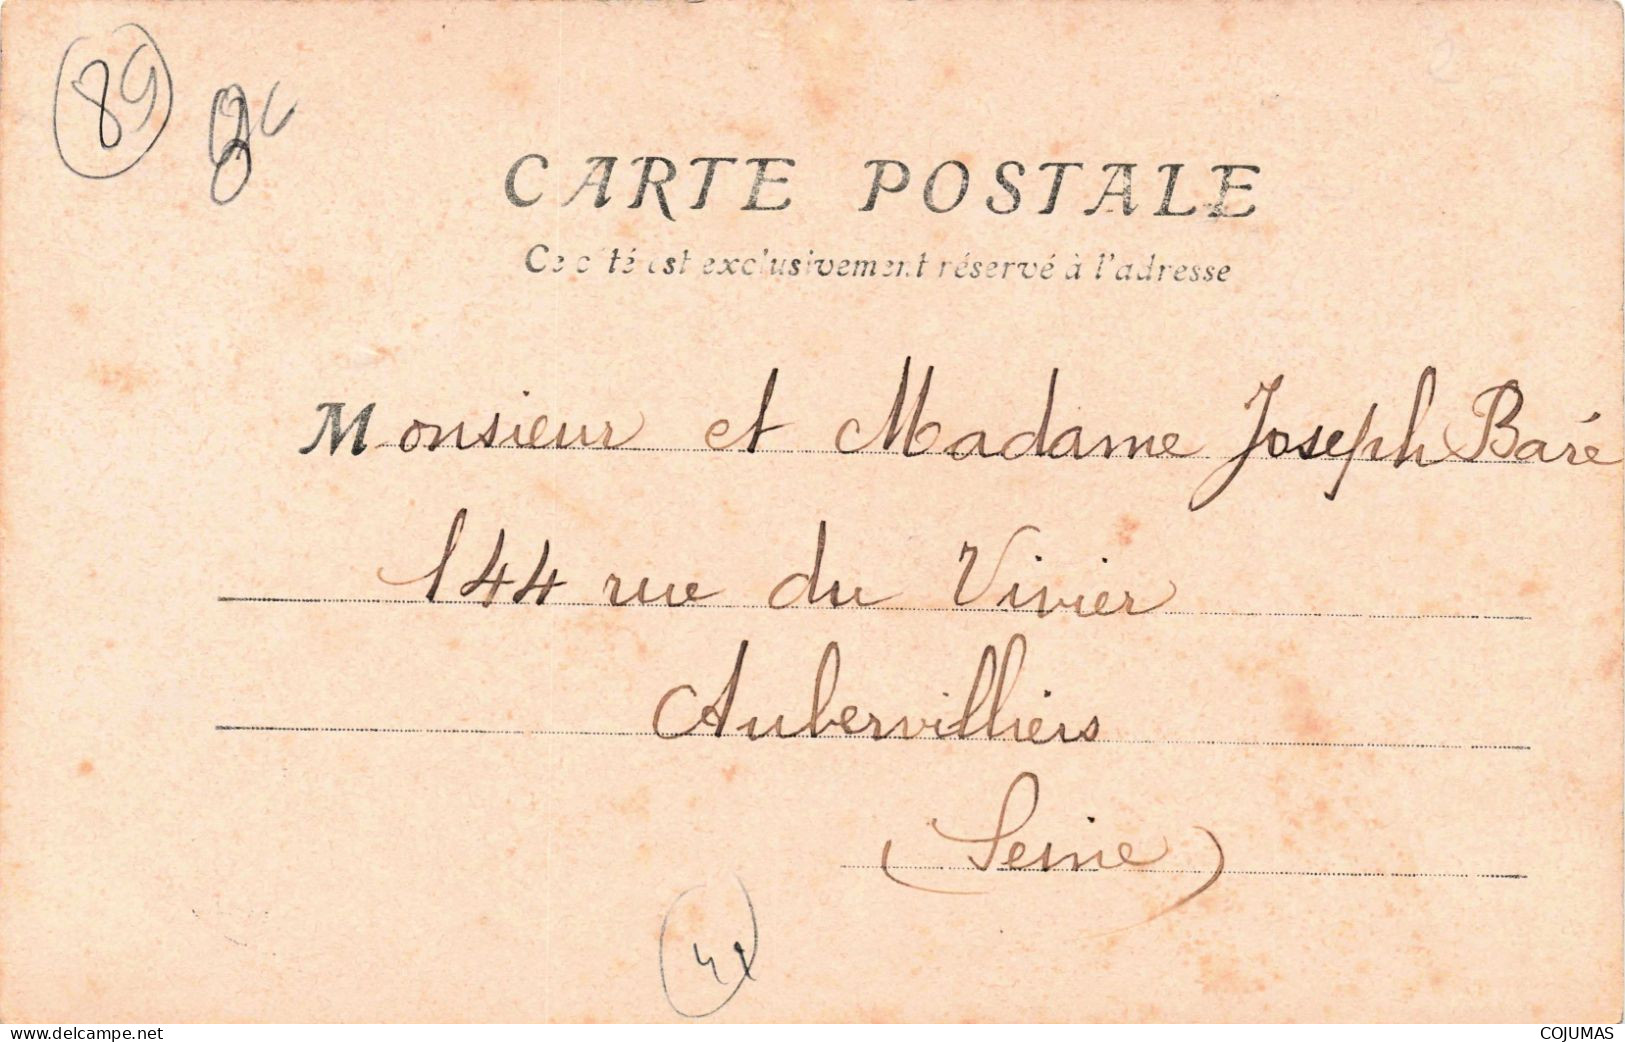 89
CARTE POSTALE
Ce côté est exclusivement réservé à l'adresse
Monsieur et Madame Joseph Baré
144 rue du Vivier
Aubervilliers
(Seine)
www.delcampe.net
COJUMAS